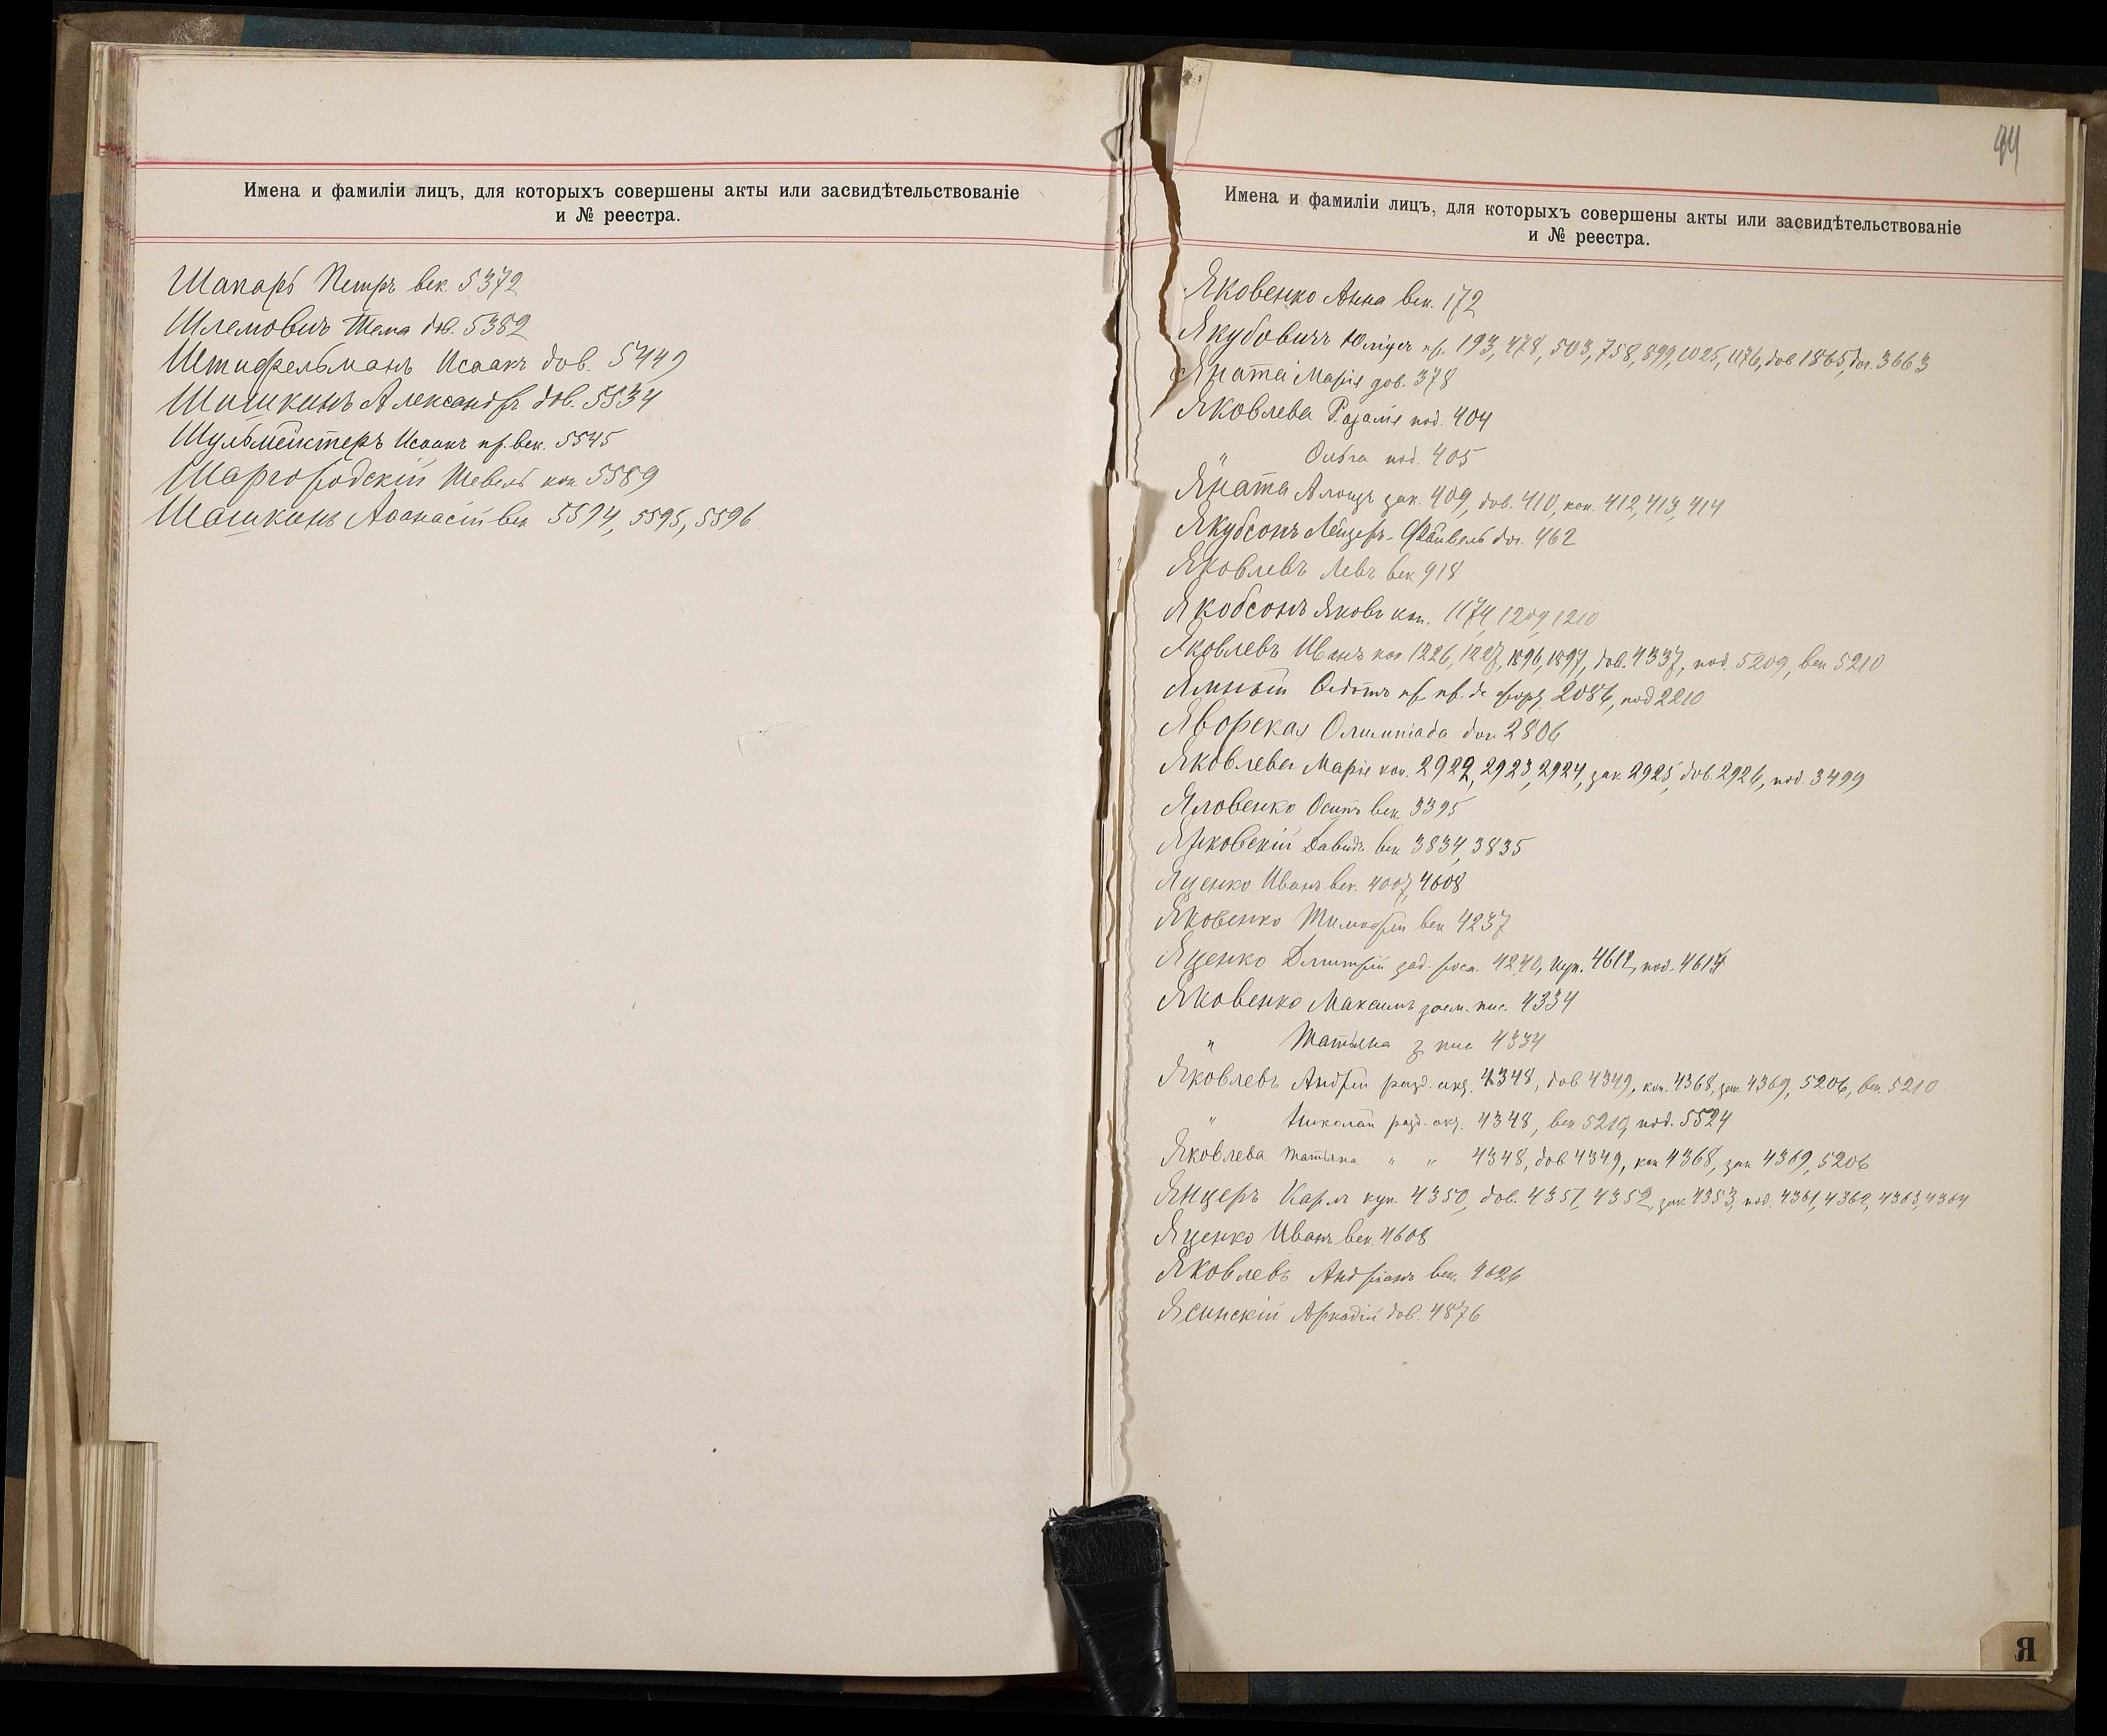 Имена и фамиліи лицъ, для которыхъ совершены акты или засвидѣтельствованіе
и № реестра.
Шапарь Петръ век. 5372
Шлемовичъ Тема дов. 5382
Штифельманъ Исаакъ дов. 5449
Шишкинъ Александръ дов. 5534
Шульмейстеръ Исаакъ пр. век. 5545
Шаргородскій Шевель коп 5589
Шашкинъ Аѳанасій век 5594, 5595, 5596
44
Имена и фамиліи лицъ, для которыхъ совершены акты или засвидѣтельствованіе
и № реестра.
Яковенко Анна век. 172
Якубовичъ пр. 193, 478, 503, 758, 899, 1025, 1176, дов 1865, дог. 3663
Яната Марія дов. 378
Яковлева Розалія под. 404
" Ольга под. 405
Яната Алоизъ зак. 409, дов. 410, коп. 412, 413, 414
Якубсонъ Лейзеръ-Файвель дог. 462
Яковлевъ Левъ век 918
Якобсонъ Яковъ коп. 1174, 1209, 1210
Яковлевъ Иванъ коп. 1226, 1227, 1896, 1897, дов. 4337, под. 5209, век 5210
Ямный Ѳедотъ пр. пр. 2086, под 2210
Яворская Олимпіада дог. 2806
Яковлева Марія коп. 2922, 2923, 2924, зак 2925, дов. 2926, под. 3499
Яловенко Осипъ век 3395
Янковскій Давидъ век 3834, 3835
Яценко Иванъ век. 4007, 4608
Яковенко Тимофей век 4237
Яценко Дмитрій зад. рос. 4240, куп. 4612, под. 4614
Яковенко Максимъ заем. пис. 4334
" Татьяна з. пис 4334
Яковлевъ Андрей разд. акт. 4348, дов 4349, коп. 4368, зак. 4369, 5206, век. 5210
" Николай разд. акт. 4348, век 5210, под. 5524
Яковлева Татьяна " " 4348, дов 4349, коп 4368, зак 4369, 5206
Янцеръ Карлъ куп. 4350, дов. 4351, 4352, зак 4353, под. 4361, 4362, 4363, 4364
Яценко Иванъ век. 4608
Яковлевъ Андріанъ век. 4626
Ясинскій Аркадій дов. 4876
Я